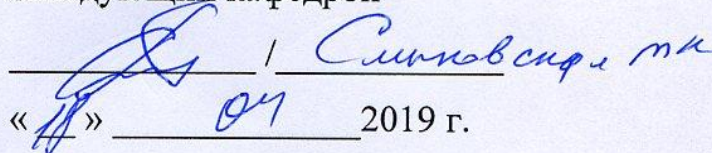 / Смыковская тк
« 18 » 04 2019 г.